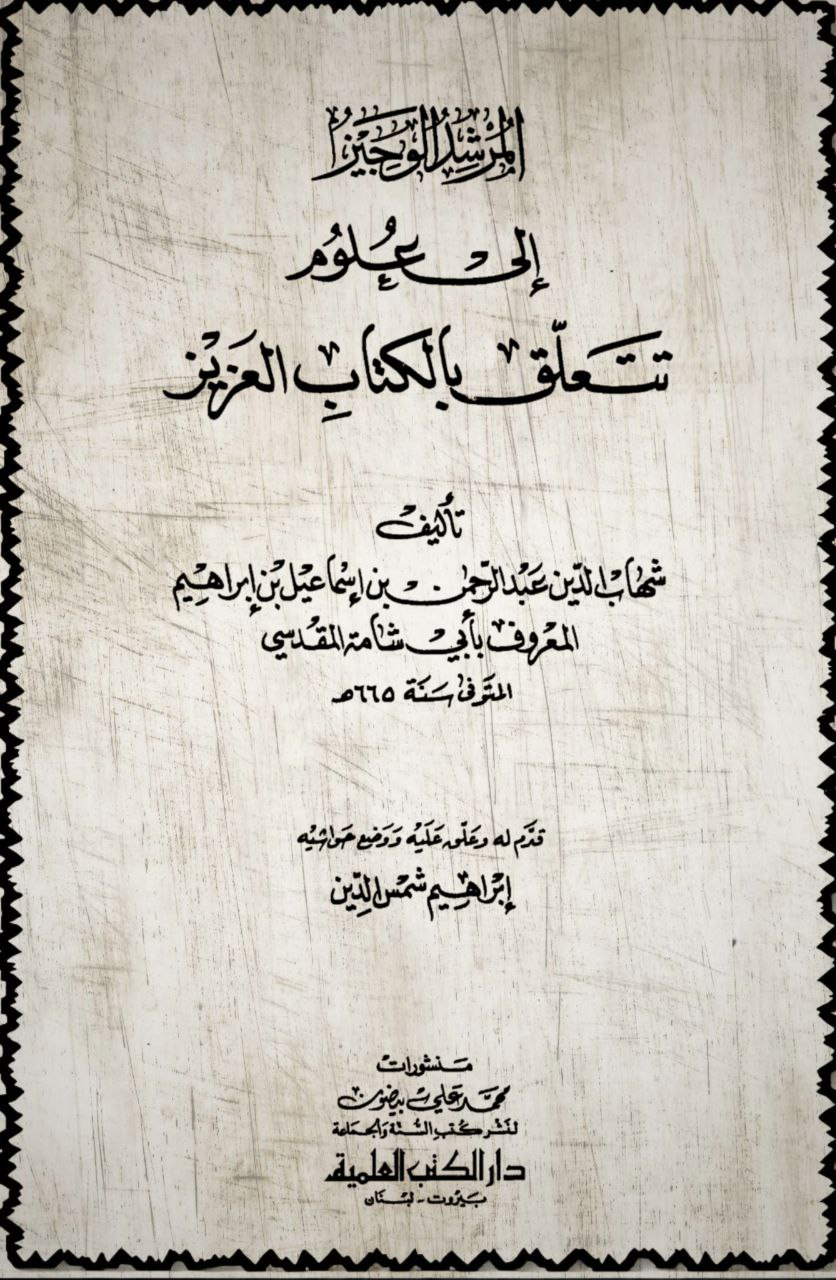 المُرْشِدُ الوَجِيْز
إلى عُلوُم
تتَعلّق بالكتابِ العَزيْز
تأليفْ
شهابْ الدّين عَبْد الرّحمن بن إسْماعيْل بْن إبراهيْم
المعْروفْ بأبيْ شامة المقْدسي
المتَوفى سَنَة ٦٦٥هـ
قدَّم له وعَلّق عَلَيْه وَوَضع حَواشيْه
إبْراهيْم شمْس الدِّين
مَنشورات
محمَّد عَليْ بيضون
لنَشْر كُتبِ السُّنّة وَالجمَاعة
دار الكتب العلمية
بَيْروت - لبْنَان